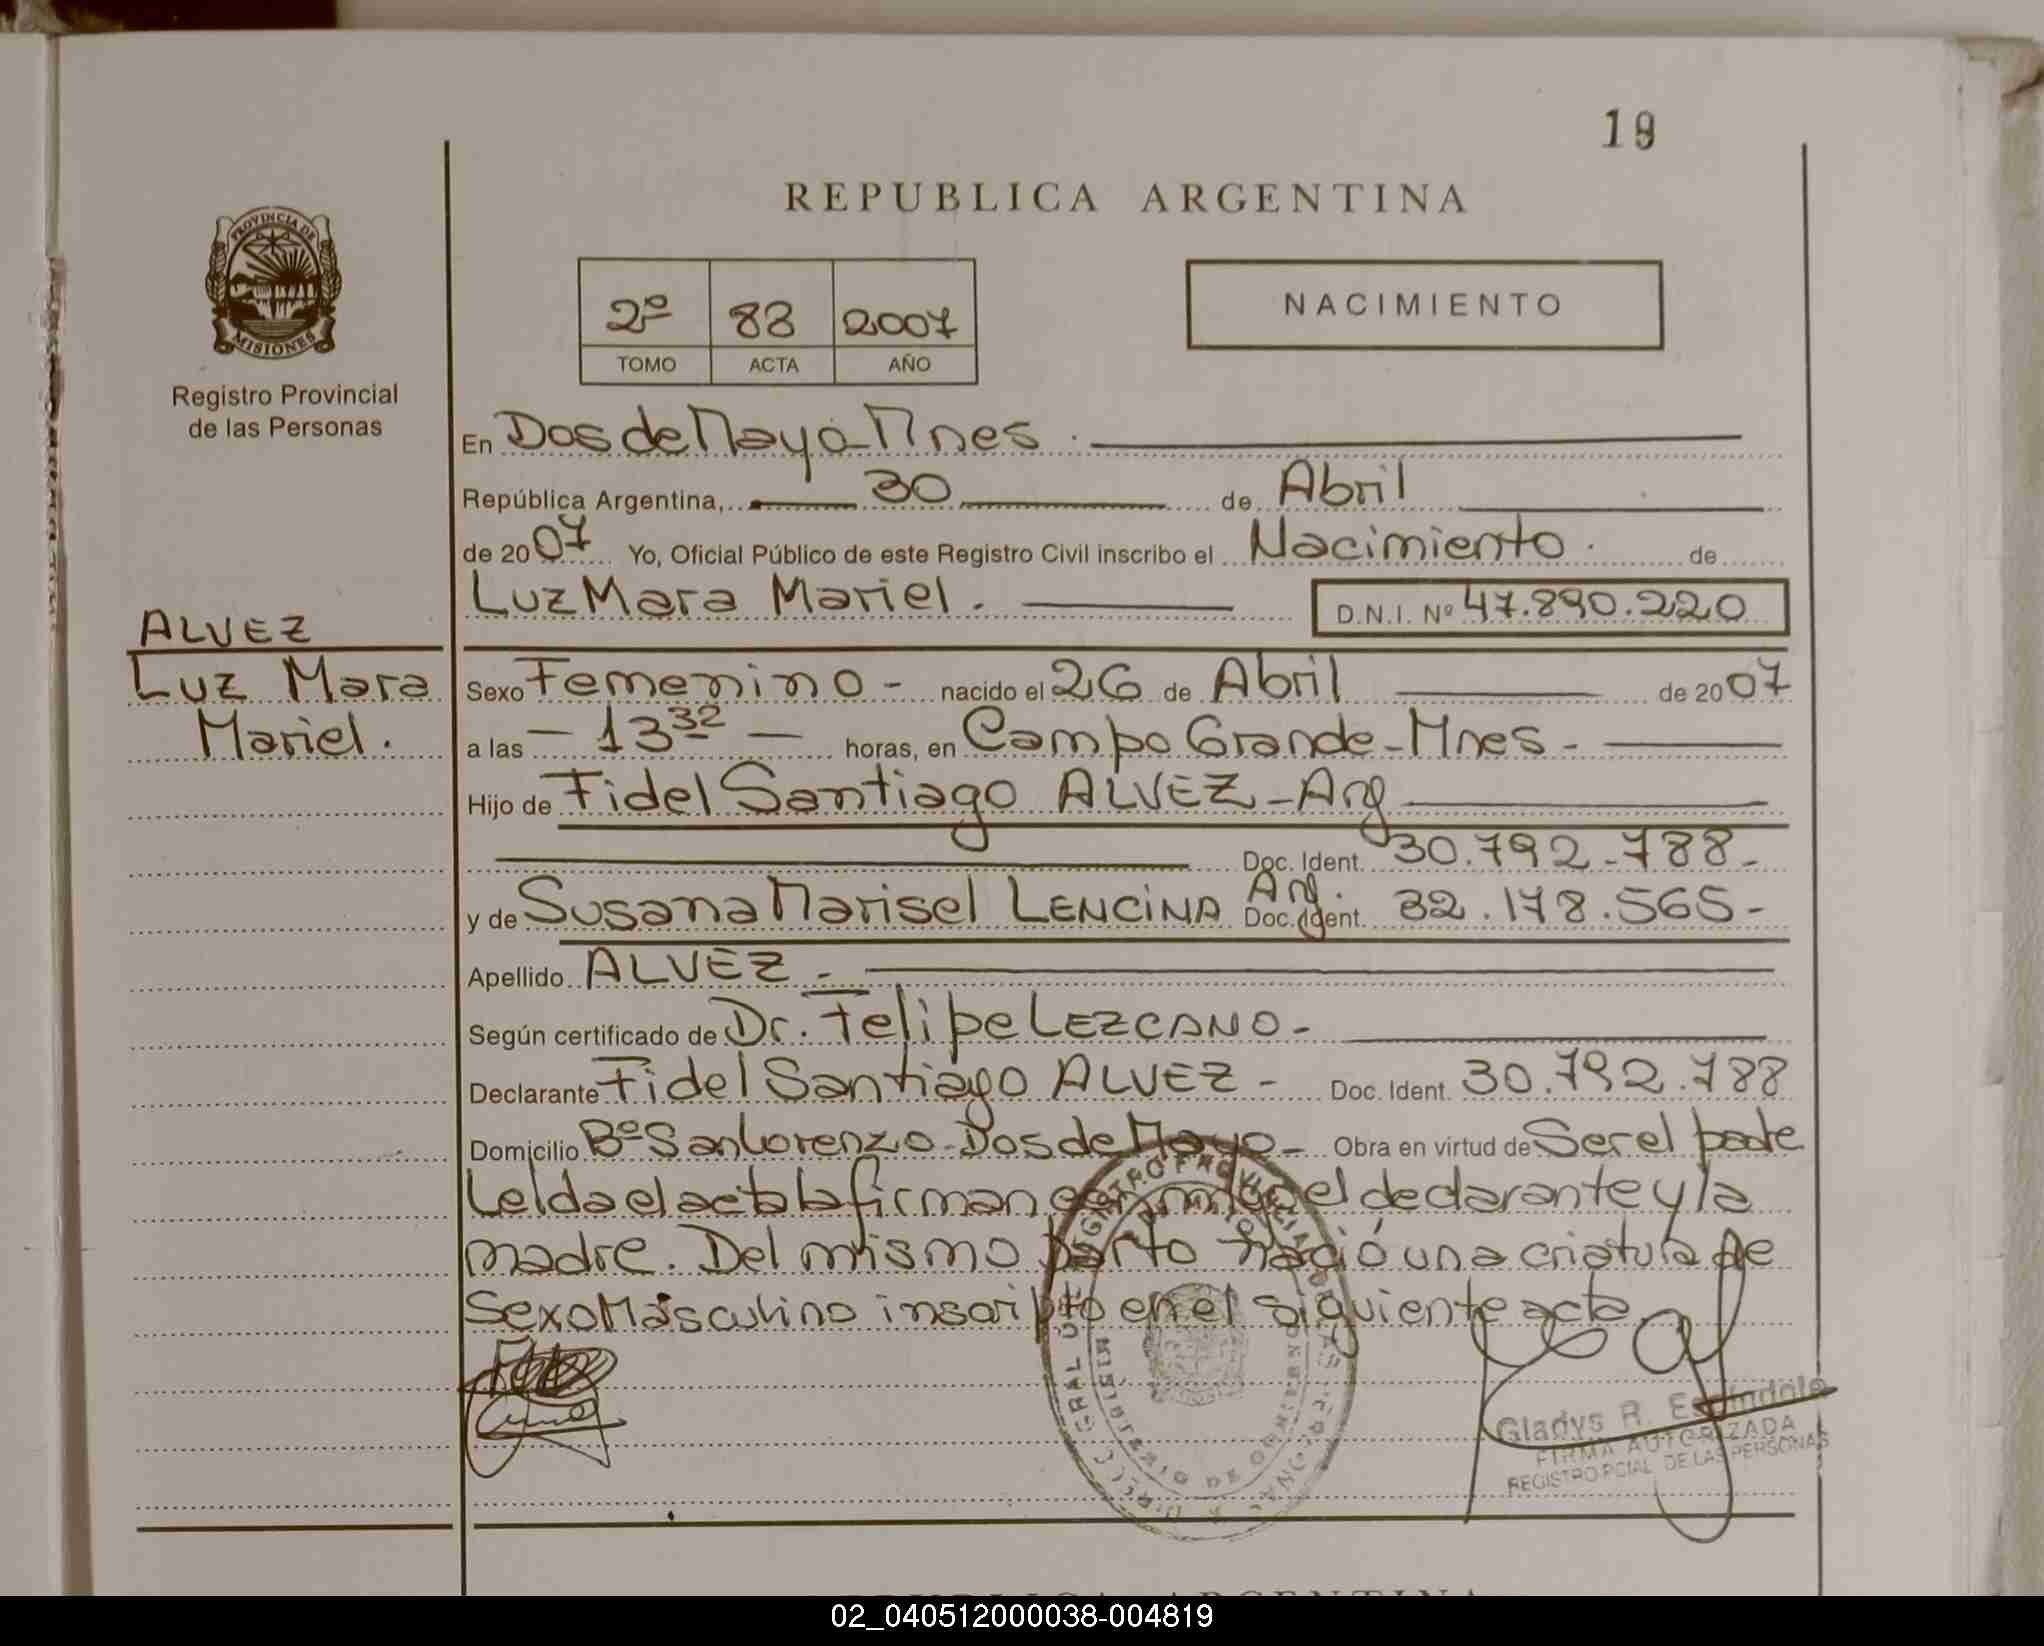 19
REPUBLICA ARGENTINA
PROVINCIA DE
MISIONES
Registro Provincial
de las Personas
2º 83 2007
TOMO ACTA AÑO
NACIMIENTO
En Dos de Mayo-Mnes.
República Argentina, 30 de Abril
de 2007 Yo, Oficial Público de este Registro Civil inscribo el Nacimiento. de
Luz Mara Mariel. D.N.I. Nº 47.890.220
ALVEZ
Luz Mara
Mariel.
Sexo Femenino - nacido el 26 de Abril de 2007
a las - 13 32 - horas, en Campo Grande-Mnes-
Hijo de Fidel Santiago ALVEZ-Arg
Doc. Ident. 30.792-788-
y de Susana Marisel LENCINA Arg. Doc. Ident. 32.178.565-
Apellido ALVEZ.-
Según certificado de Dr. Felipe LEZCANO-
Declarante Fidel Santiago ALVEZ- Doc. Ident. 30.792.788
Domicilio Bº San Lorenzo-Dos de Mayo- Obra en virtud de Ser el padre
Leída el acta la firman conmigo el declarante y la
madre. Del mismo parto nació una criatura de
Sexo Masculino inscripto en el siguiente acta
Gladys R. Espíndola
FIRMA AUTORIZADA
REGISTRO PCIAL DE LAS PERSONAS
REPUBLICA ARGENTINA
02_040512000038-004819